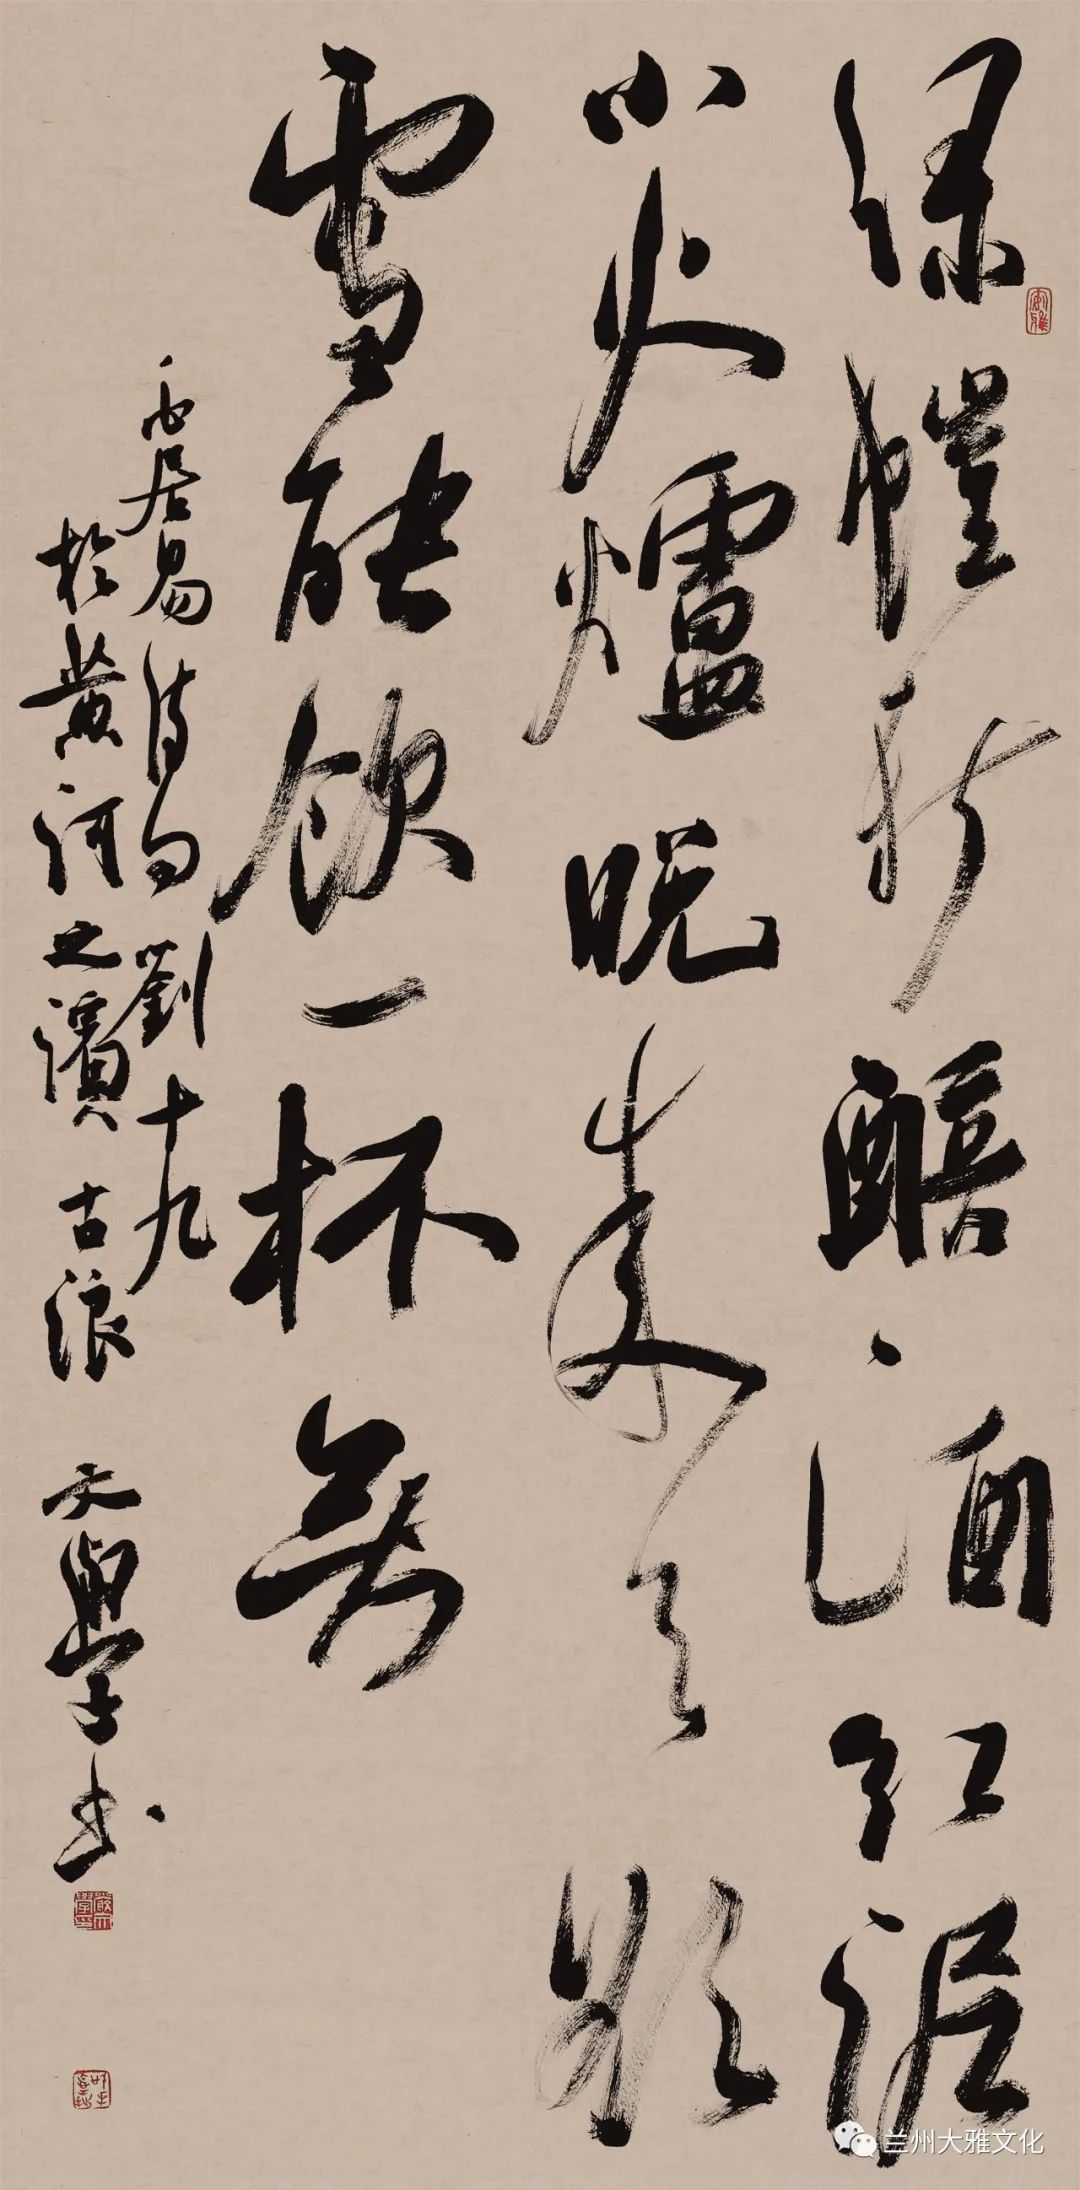 綠螘新醅酒紅泥
小火爐晚來天欲
雪能飲一杯無
白居易詩問劉十九
於黃河之濱 古浪 文學書
兰州大雅文化